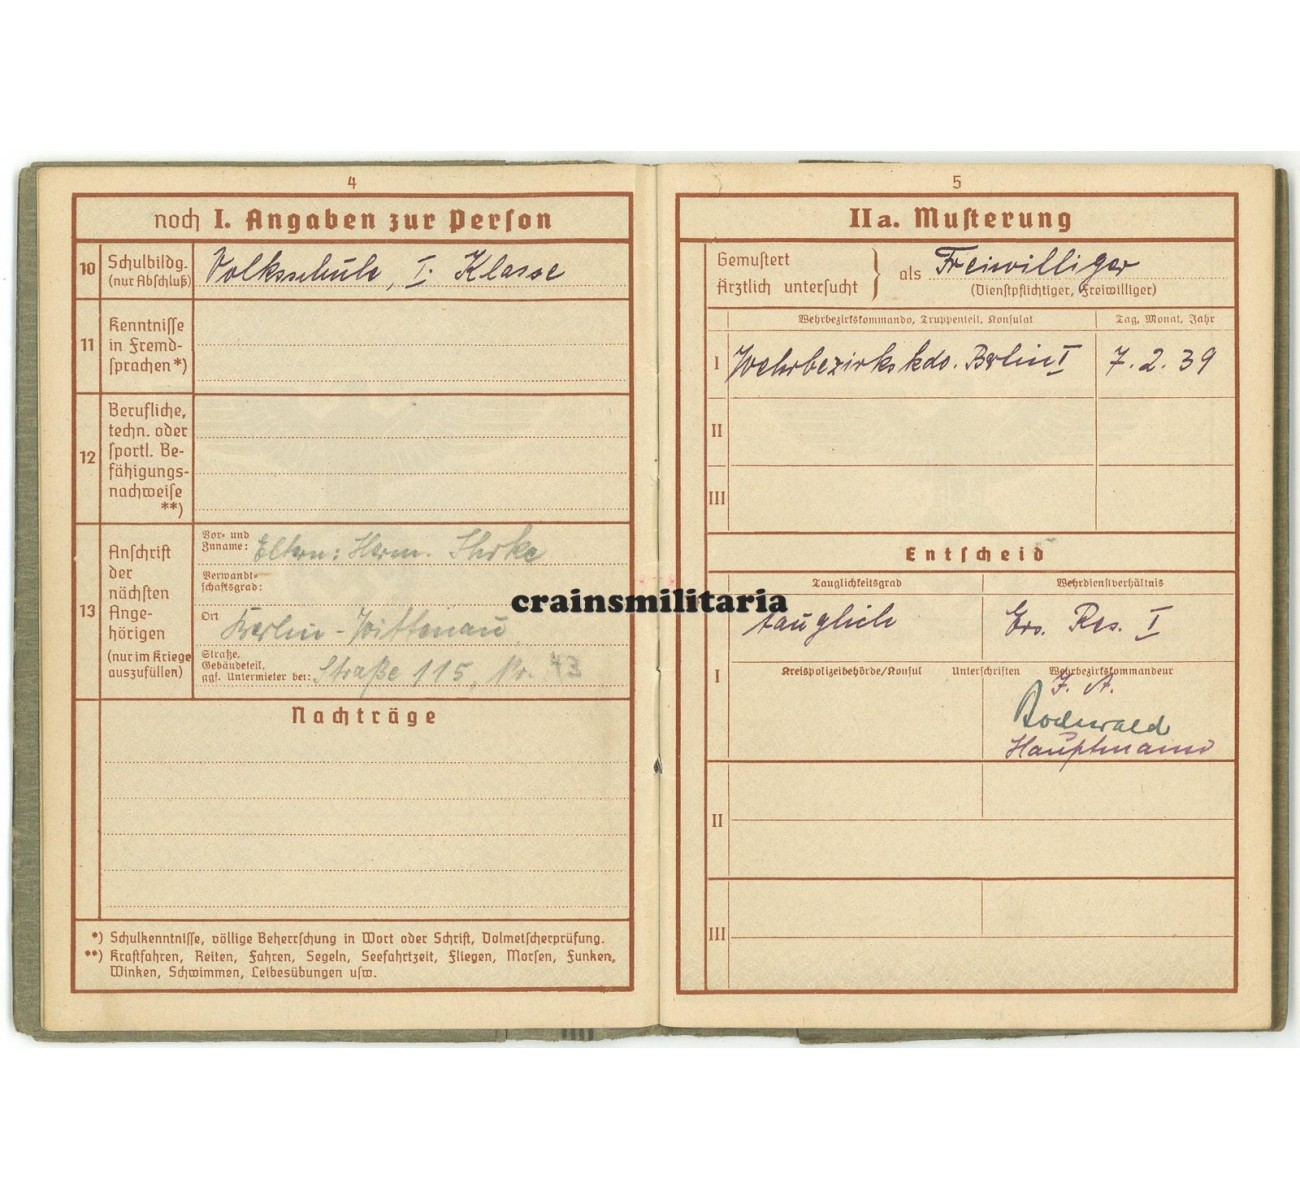 4
noch I. Angaben zur Person
10 Schulbildg. (nur Abschluß) Volksschule, I. Klasse
11 Kenntnisse in Fremdsprachen *)
12 Berufliche, techn. oder sportl. Befähigungsnachweise **)
13 Anschrift der nächsten Angehörigen (nur im Kriege auszufüllen)
Vor- und Zuname: Eltern: Herm.
Verwandtschaftsgrad:
Ort Berlin-Wittenau
Straße, Gebäudeteil, ggf. Untermieter bei: Straße 115, Nr. 43
Nachträge
*) Schulkenntnisse, völlige Beherrschung in Wort oder Schrift, Dolmetscherprüfung.
**) Kraftfahren, Reiten, Fahren, Segeln, Seefahrtzeit, Fliegen, Morsen, Funken,
Winken, Schwimmen, Leibesübungen usw.
5
IIa. Musterung
Gemustert
Ärztlich untersucht } als Freiwilliger
(Dienstpflichtiger, Freiwilliger)
Wehrbezirkskommando, Truppenteil, Konsulat Tag, Monat, Jahr
I Wehrbezirkskdo. Berlin I 7.2.39
II
III
Entscheid
Tauglichkeitsgrad Wehrdienstverhältnis
tauglich Ers. Res. I
I Kreispolizeibehörde/Konsul Unterschriften Wehrbezirkskommandeur
J. A.
Hauptmann
II
III
crainsmilitaria